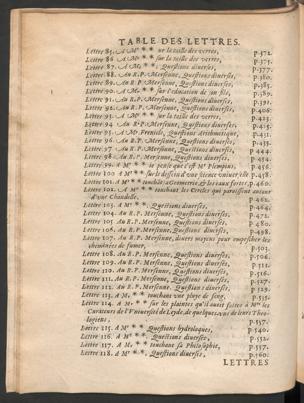 TABLE DES LETTRES.
Lettre 85. A Mr * * sur la taille des verres, p.372.
Lettre 86. A Mr * * sur la taille des verres, p.375.
Lettre 87. A Mr * *, Questions diverses, p.377.
Lettre 88. Au R.P. Mersenne, Questions diverses, p.380.
Lettre 89. Au R.P. Mersenne, Questions diverses, p.385.
Lettre 90. A Mr * * sur l'education de un fils, p.389.
Lettre 91. Au R.P. Mersenne, Questions diverses, p.391.
Lettre 92. Au R.P. Mersenne, Questions diverses, p.406.
Lettre 93. A Mr * * sur la taille des verres, p.423.
Lettre 94. Au R.P. Mersenne, Questions diverses, p.425.
Lettre 95. A Mr Frenicle, Question Arithmetique, p.432.
Lettre 96. Au R.P. Mersenne, Questions diverses, p.439.
Lettre 97. Au R.P. Mersenne, Questions diverses, p.444.
Lettre 98. Au R.P. Mersenne, Questions diverses, p.454.
Lettre 99. A Mr * * le pria que c'est Mr Plempius, p.456.
Lettre 100. A Mr * * sur le dessein d'une science universelle p.458.
Lettre 101. A Mr * * touchant la Geometrie & les eaux fortes, p.460.
Lettre 102. A Mr * * touchant les Cercles qui paroissent autour
d'une Chandelle, p.462.
Lettre 103. A Mr * *, Questions diverses, p.464.
Lettre 104. Au R.P. Mersenne, Questions diverses, p.472.
Lettre 105. Au R.P. Mersenne, Questions diverses, p.480.
Lettre 106. Au R.P. Mersenne, Questions diverses, p.498.
Lettre 107. Au R.P. Mersenne, divers moyens pour empescher les
cheminées de fumer, p.503.
Lettre 108. Au R.P. Mersenne, Questions diverses, p.506.
Lettre 109. Au R.P. Mersenne, Questions diverses, p.512.
Lettre 110. Au R.P. Mersenne, Questions diverses, p.516.
Lettre 111. Au R.P. Mersenne, Questions diverses, p.527.
Lettre 112. Au R.P. Mersenne, Questions diverses, p.529.
Lettre 113. A Mr * * touchant une pluye de sang, p.535.
Lettre 114. A Mr * * sur les plaintes qu'il avoit faites à Mrs les
Curateurs de l'Université de Leyde, de quelques-uns de leurs Theo-
logiens, p.537.
Lettre 115. A Mr * *, Questions hydroliques, p.540.
Lettre 116. A Mr * *, Questions diverses, p.552.
Lettre 117. A Mr * * touchant sa Philosophie, p.557.
Lettre 118. A Mr * *, Questions diverses, p.560.
LETTRES